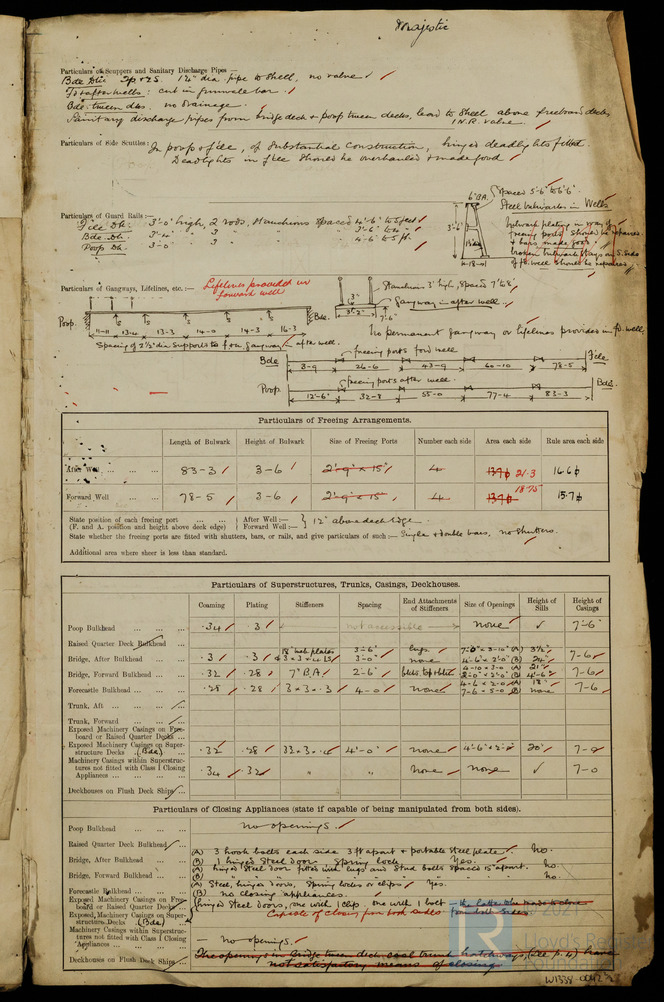 Majestic
Particulars of Scuppers and Sanitary Discharge Pipes —
Bde Dk P+S. 1¼" dia. pipe to shell, no valve
For'd + after wells: cut in gunwale bar.
Bde. tween dks. no drainage.
Sanitary discharge pipes from bridge deck + poop tween decks, lead to shell above freeboard deck
1 N.R. valve
Particulars of Side Scuttles:— In poop + f'cle, of substantial construction, hinged deadlights fitted.
Deadlights in f'cle should be overhauled + made good
6" B.A. Spaced 5'-6" to 6'-6"
Steel bulwarks in Wells
3'-6"
bulwark plating in way of
freeing ports should be repaired
+ bars made good.
broken bulwark stays on S. side
of fd. well should be repaired
Particulars of Guard Rails:—
F'cle Dk: 3'-0" high, 2 rods, stanchions spaced 4'-6" to 5 feet
Bde. Dk: 3'-4" 3 " " 3'-6" to 4'-
Poop Dk: 3'-0 3 " 4'-6" to 5 ft.
Particulars of Gangways, Lifelines, etc.:— Lifelines provided in
forward well
Stanchions 3' high, spaced 7' to 8'
Gangway in after well.
3'-2"
7'-6"
Poop. Bde.
11-11 13-4 13-3 14-0 14-3 16-3
Spacing of 2½" dia supports to f + a gangway — after well.
No permanent gangway or lifelines provided in fd. well.
freeing ports for'd well
Bde F'cle
3-9 26-6 43-9 60-10 78-5
freeing ports after well.
Poop. Bde.
12'-6" 32-8 55-0 77-4 83-3
Particulars of Freeing Arrangements.
Length of Bulwark Height of Bulwark Size of Freeing Ports Number each side Area each side Rule area each side
After Well 83-3 3-6 2'-9" x 15" 4 21.3 16.6
Forward Well 78-5 3-6 2'-9" x 15" 4 18.75 15.7
State position of each freeing port ... ... After Well:—
(F. and A. position and height above deck edge) Forward Well:— 12" above deck edge.
State whether the freeing ports are fitted with shutters, bars, or rails, and give particulars of such:— Single + double bars, no shutters.
Additional area where sheer is less than standard.
Particulars of Superstructures, Trunks, Casings, Deckhouses.
Coaming Plating Stiffeners Spacing End Attachments of Stiffeners Size of Openings Height of Sills Height of Casings
Poop Bulkhead .34 .3 not accessible none 7'-6"
Raised Quarter Deck Bulkhead
Bridge, After Bulkhead .3 .3 18" web plates 3'-6" lugs 7'-0" x 3'-10" (A) 3½" 7-6
3'-0" none 4'-6" x 2'-0" (B) 24"
Bridge, Forward Bulkhead .32 .28 7" B A 2'-6" 4-10 x 3-0 (A) 21" 7-6
2'-0" x 2'-0" (B) 4'-6"
Forecastle Bulkhead .28 .28 3 x 3 x .3 4-0 none 4-6 x 2-0 (A) 18" 7-6
7-6 x 5-0 (B) none
Trunk, Aft
Trunk, Forward
Exposed Machinery Casings on Freeboard or Raised Quarter Decks
Exposed Machinery Casings on Superstructure Decks (Bde) .32 .28 4'-0" none 20"
Machinery Casings within Superstructures not fitted with Class I Closing Appliances .34 .32 " " none none 7-0
Deckhouses on Flush Deck Ships
Particulars of Closing Appliances (state if capable of being manipulated from both sides).
Poop Bulkhead no openings.
Raised Quarter Deck Bulkhead
Bridge, After Bulkhead (A) 3 hook bolts each side 3 ft apart + portable steel plate. No.
(B) 1 hinged steel door spring lock Yes.
Bridge, Forward Bulkhead (A) hinged steel door fitted with lugs and stud bolts spaced 15" apart. No.
(B) " " " " " " No.
Forecastle Bulkhead (A) Steel, hinged doors, spring locks or clips. Yes.
(B) no closing appliances.
Exposed Machinery Casings on Freeboard or Raised Quarter Decks
Exposed Machinery Casings on Superstructure Decks (Bde) hinged steel doors, one with 1 clip, one with 1 bolt — the latter to be made to close from both sides
Capable of closing from both sides
Machinery Casings within Superstructures not fitted with Class I Closing Appliances — no openings.
Deckhouses on Flush Deck Ships
The openings in bridge tween deck, coal trunk hatchways, (see p. 4) have
not satisfactory means of closing.
LR
Lloyd's Register
Foundation
W1338-0042